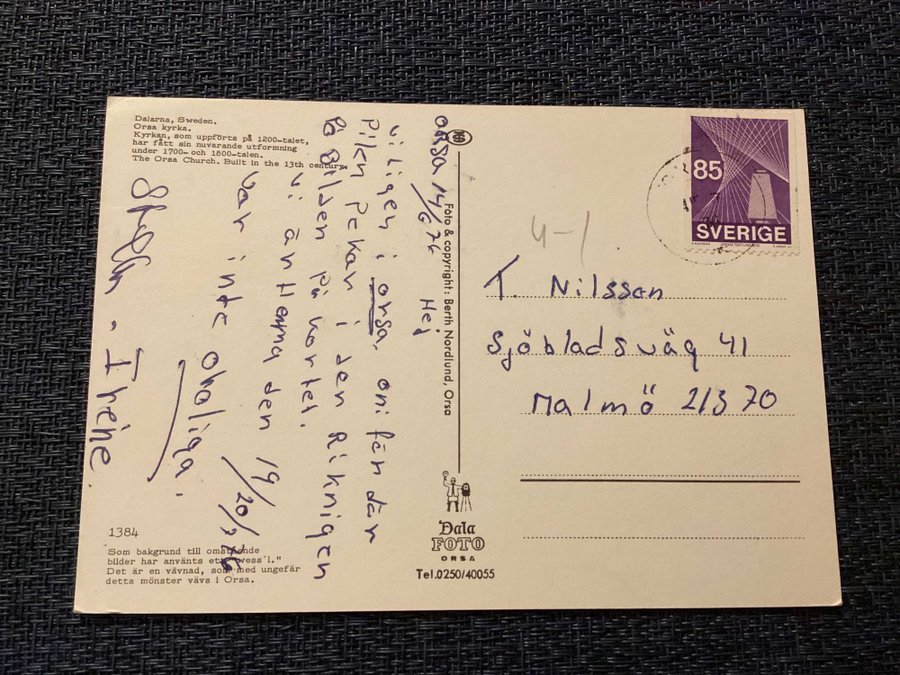 Dalarna, Sweden.
Orsa kyrka.
Kyrkan, som uppförts på 1200-talet,
har fått sin nuvarande utformning
under 1700-och 1800-talen.
The Orsa Church. Built in the 13th century.
Orsa 14/6 76
Hej
Vi liger i orsa. onifär där
Pilen Pekar i den Riknigen
På Bilden På kortet.
Vi är Hema den 19/20/7 76
Var inte oroliga.
Irene.
1384
Som bakgrund till omstående
bilder har använts ett "wess´l."
Det är en vävnad, som med ungefär
detta mönster vävs i Orsa.
Foto & copyright: Berth Nordlund, Orsa
Dala
FOTO
ORSA
Tel.0250/40055
85
SVERIGE
4-1
T. Nilsson
Sjöbladsväg 41
Malmö 213 70